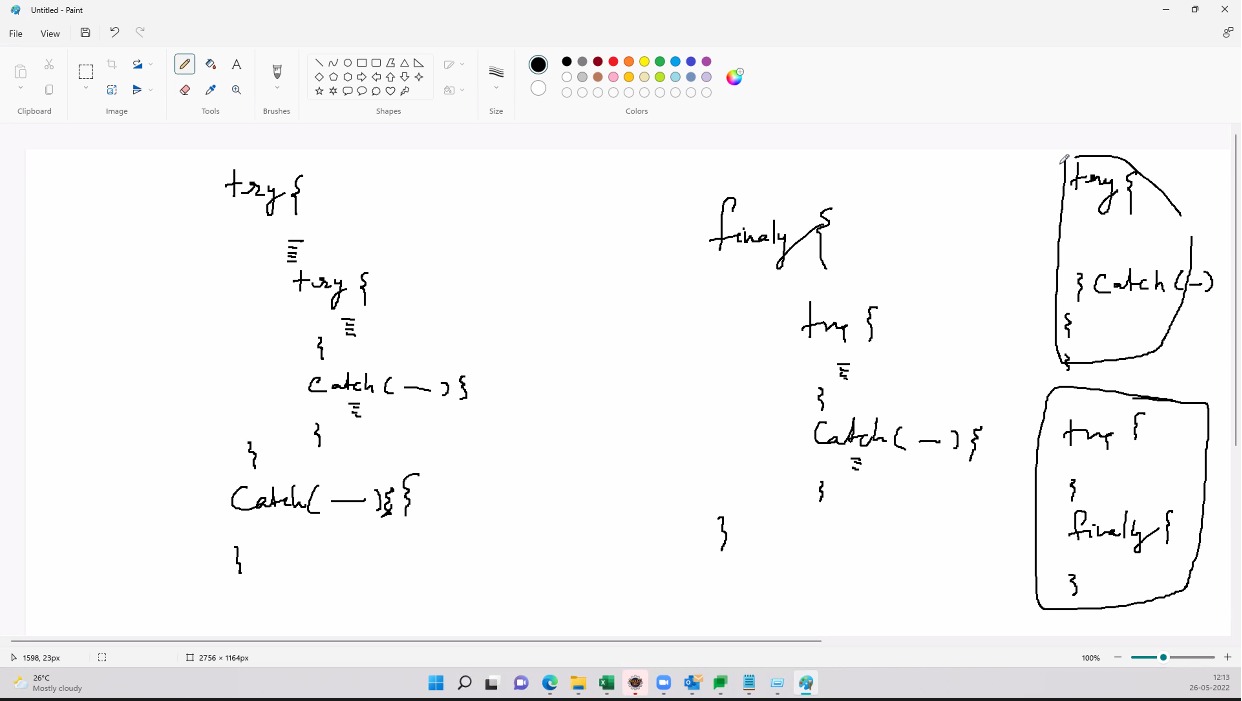 Untitled - Paint
File View
Clipboard Image Tools Brushes Shapes Size Colors
try {
try {
}
Catch ( — ) {
}
}
Catch( — ){ {
}
finaly {
try {
}
Catch( — ) {
}
}
try {
} Catch ( — )
{
}
try {
}
finally {
}
1598, 23px
2756 × 1164px
100%
26°C
Mostly cloudy
12:13
26-05-2022